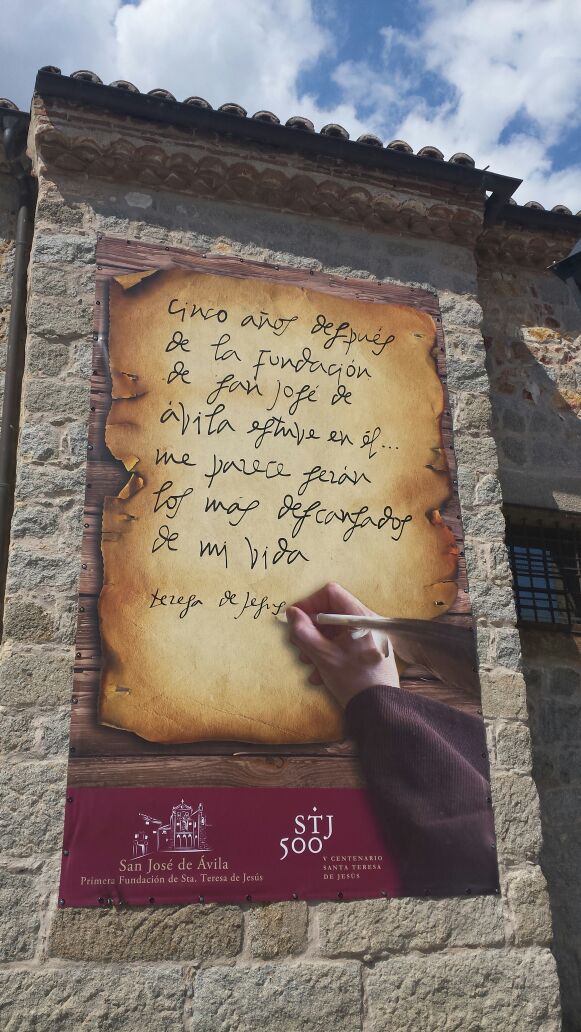 Cinco años después
de la Fundación
de san josé de
ávila estuve en él...
me parece serán
los más descansados
de mi vida
teresa de jesus
San José de Ávila
Primera Fundación de Sta. Teresa de Jesús
STJ
500
V CENTENARIO
SANTA TERESA
DE JESÚS